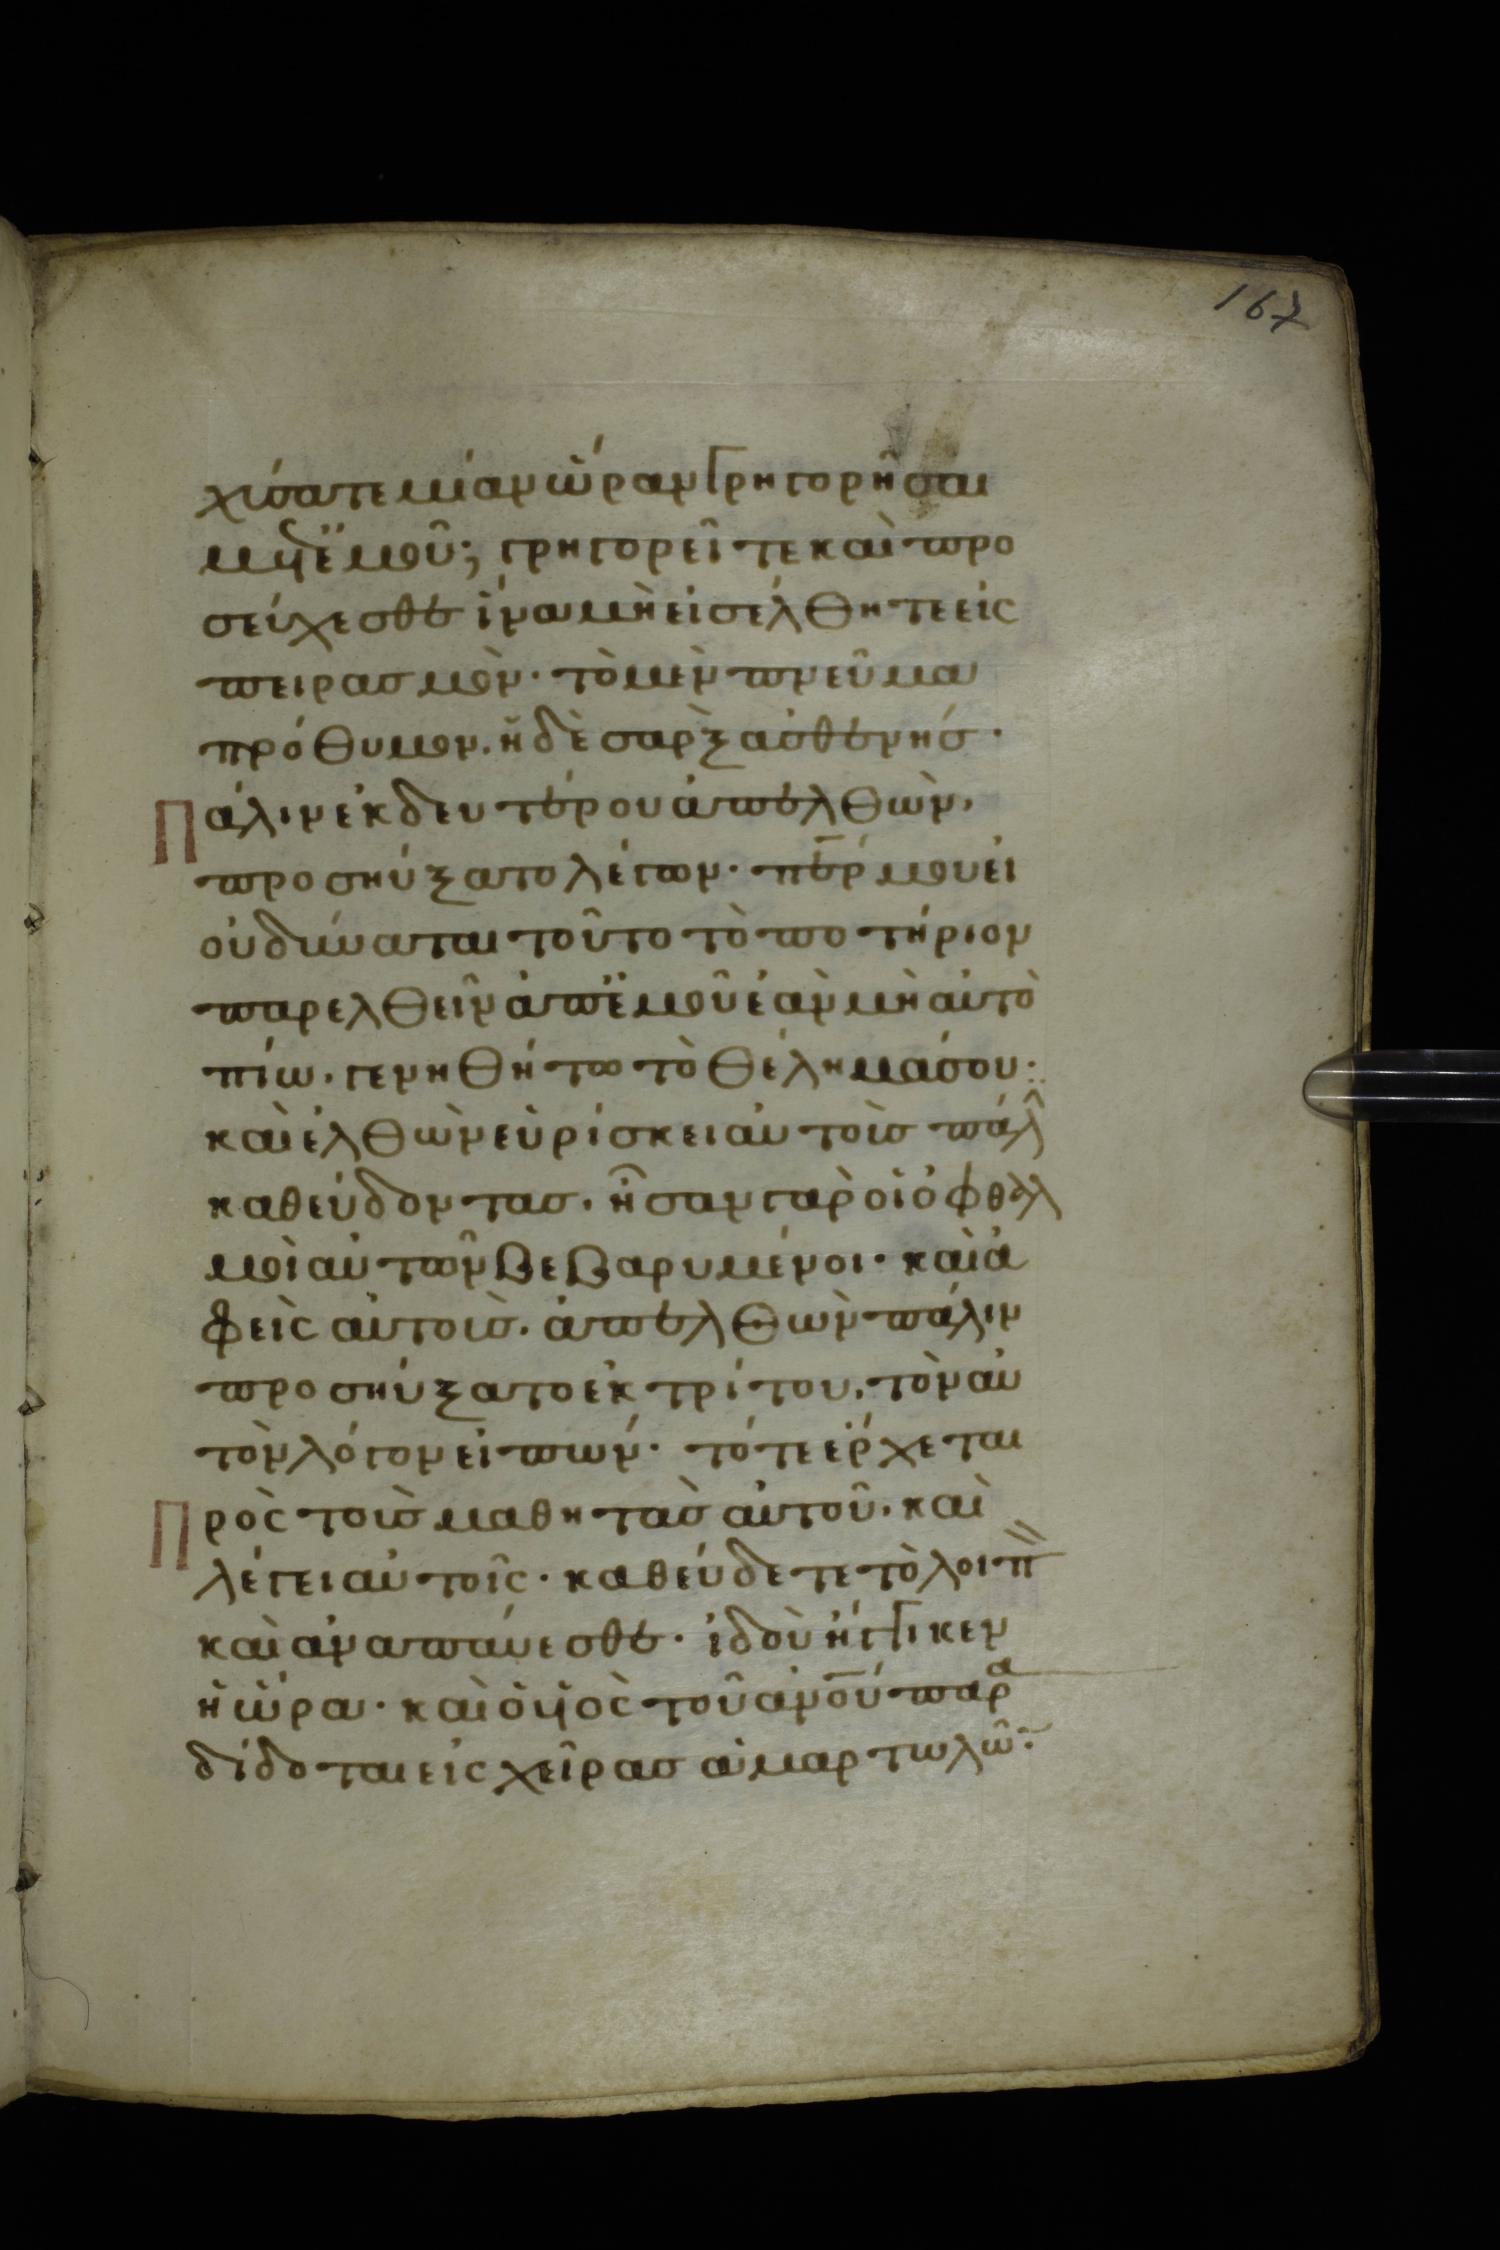 167
χύσατε μίαν ὥραν γρηγορῆσαι
μετ' ἐμοῦ; γρηγορεῖτε καὶ προ
σεύχεσθε ἵνα μὴ εἰσέλθητε εἰς
πειρασμὸν· τὸ μὲν πνεῦμα
πρόθυμον. ἡ δὲ σαρξ ἀσθενής·
Πάλιν ἐκ δευτέρου ἀπελθὼν,
προσηύξατο λέγων· πε̅ρ μου εἰ
οὐ δύναται τοῦτο τὸ ποτήριον
παρελθεῖν ἀπ' ἐμοῦ ἐὰν μὴ αὐτὸ
πίω. γενηθήτω τὸ θέλημά σου:
καὶ ἐλθὼν εὑρίσκει αὐτοὺς πάλ
καθεύδοντας. ἦσαν γαρ οἱ ὀφθαλ
μοὶ αὐτῶν βεβαρυμένοι· καὶ ἀ
φεὶς αὐτοὺς. ἀπελθὼν πάλιν
προσηύξατο ἐκ τρίτου. τὸν αὐ
τὸν λόγον εἰπών· τότε ἔρχεται
Πρὸς τοὺς μαθητὰς αὐτοῦ. καὶ
λέγει αὐτοῖς· καθεύδετε τὸ λοιπ
καὶ ἀναπαύεσθε· ἰδοὺ ἤγγικεν
ἡ ὥρα· καὶ ὁ υἱὸς τοῦ ἀν̅ο̅υ̅ παρα
δίδοται εἰς χεῖρας ἁμαρτωλῶ: